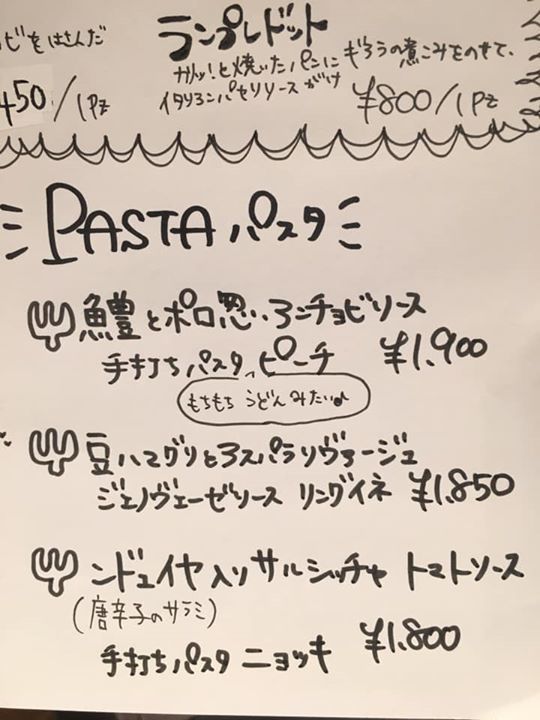 ビをはさんだ
450/1Pz
ランプレドット
カリッ!と焼いたパンにギろうの煮こみをのせて、
イタリアンパセリソースがけ
¥800/1Pz
PASTA パスタ
鱧とポロ葱、アンチョビソース
手打ちパスタ、ピーチ ¥1,900
もちもち うどんみたい♪
豆ハマグリとアスパラソヴァージュ
ジェノヴェーゼソース リングイネ ¥1,850
ンドュイヤ入りサルシッチャ トマトソース
(唐辛子のサラミ)
手打ちパスタ ニョッキ ¥1,800